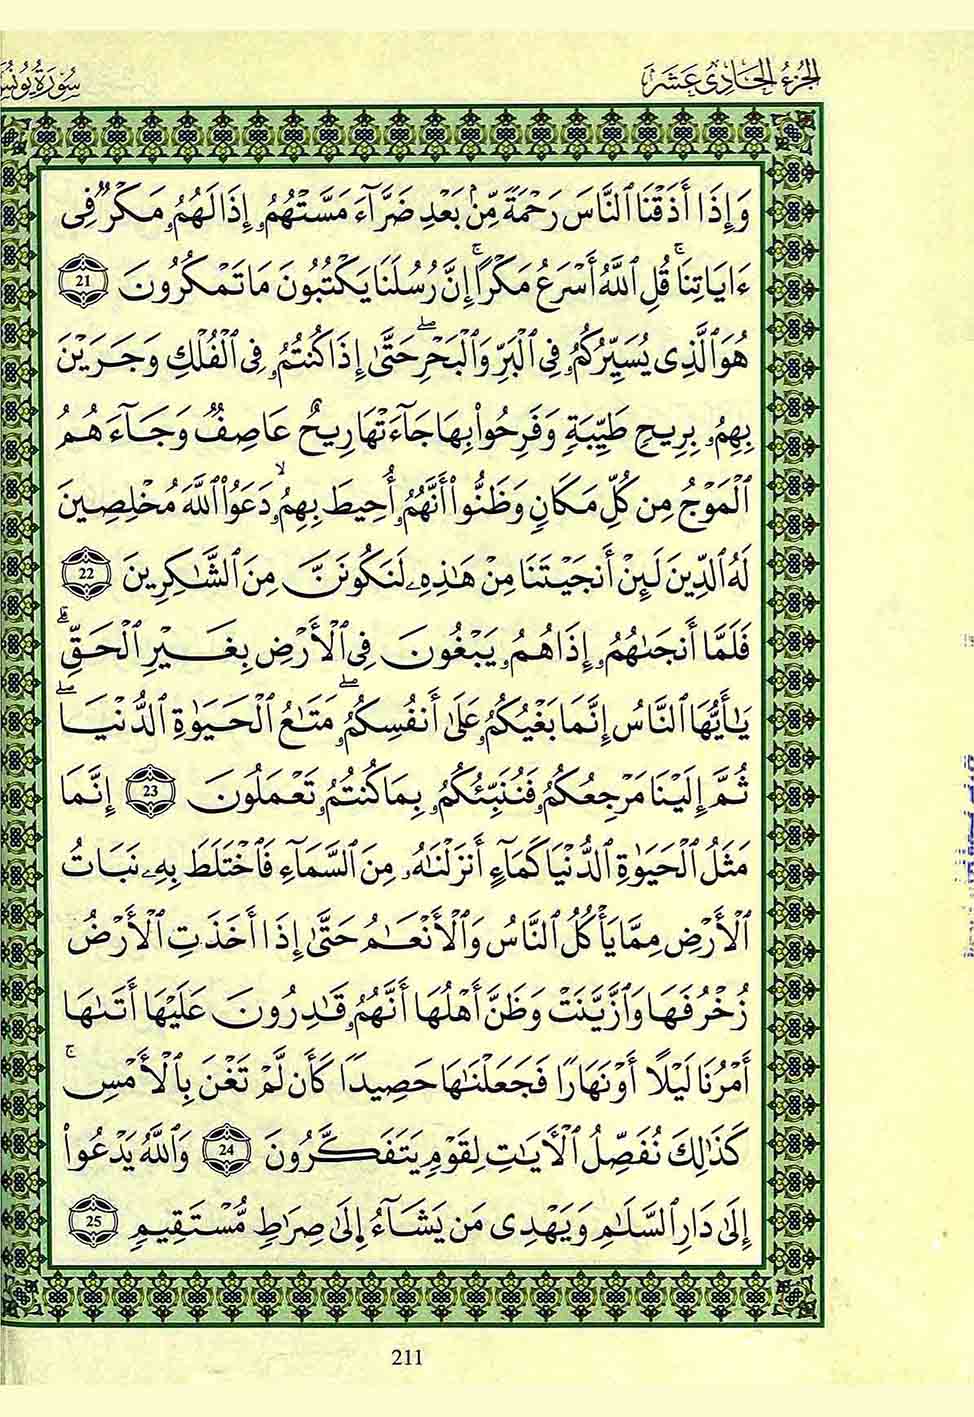 الجزء الحادي عشر
سورة يونس
وَإِذَا أَذَقْنَا ٱلنَّاسَ رَحْمَةً مِّنۢ بَعْدِ ضَرَّآءَ مَسَّتْهُمُۥٓ إِذَا لَهُمُۥ مَكْرٌ فِى
ءَايَاتِنَاۚ قُلِ ٱللَّهُ أَسْرَعُ مَكْرًاۚ إِنَّ رُسُلَنَا يَكْتُبُونَ مَا تَمْكُرُونَ 21
هُوَ ٱلَّذِى يُسَيِّرُكُمُۥ فِى ٱلْبَرِّ وَٱلْبَحْرِۖ حَتَّىٰٓ إِذَا كُنتُمُۥ فِى ٱلْفُلْكِ وَجَرَيْنَ
بِهِمُۥ بِرِيحٍ طَيِّبَةٍ وَفَرِحُوا۟ بِهَا جَآءَتْهَا رِيحٌ عَاصِفٌ وَجَآءَهُمُ
ٱلْمَوْجُ مِن كُلِّ مَكَانٍ وَظَنُّوٓا۟ أَنَّهُمُۥٓ أُحِيطَ بِهِمُۥۙ دَعَوُا۟ ٱللَّهَ مُخْلِصِينَ
لَهُ ٱلدِّينَ لَئِنْ أَنجَيْتَنَا مِنْ هَـٰذِهِۦ لَنَكُونَنَّ مِنَ ٱلشَّـٰكِرِينَ 22
فَلَمَّآ أَنجَىٰهُمُۥٓ إِذَا هُمُۥ يَبْغُونَ فِى ٱلْأَرْضِ بِغَيْرِ ٱلْحَقِّۗ
يَـٰٓأَيُّهَا ٱلنَّاسُ إِنَّمَا بَغْيُكُمُۥ عَلَىٰٓ أَنفُسِكُمُۥۖ مَتَـٰعُ ٱلْحَيَوٰةِ ٱلدُّنْيَاۖ
ثُمَّ إِلَيْنَا مَرْجِعُكُمُۥ فَنُنَبِّئُكُمُۥ بِمَا كُنتُمُۥ تَعْمَلُونَ 23 إِنَّمَا
مَثَلُ ٱلْحَيَوٰةِ ٱلدُّنْيَا كَمَآءٍ أَنزَلْنَـٰهُۥ مِنَ ٱلسَّمَآءِ فَٱخْتَلَطَ بِهِۦ نَبَاتُ
ٱلْأَرْضِ مِمَّا يَأْكُلُ ٱلنَّاسُ وَٱلْأَنْعَـٰمُ حَتَّىٰٓ إِذَآ أَخَذَتِ ٱلْأَرْضُ
زُخْرُفَهَا وَٱزَّيَّنَتْ وَظَنَّ أَهْلُهَآ أَنَّهُمُۥ قَـٰدِرُونَ عَلَيْهَآ أَتَىٰهَآ
أَمْرُنَا لَيْلًا أَوْ نَهَارًا فَجَعَلْنَـٰهَا حَصِيدًا كَأَن لَّمْ تَغْنَ بِٱلْأَمْسِۚ
كَذَٰلِكَ نُفَصِّلُ ٱلْأٓيَـٰتِ لِقَوْمٍ يَتَفَكَّرُونَ 24 وَٱللَّهُ يَدْعُوٓا۟
إِلَىٰ دَارِ ٱلسَّلَـٰمِ وَيَهْدِى مَن يَشَآءُ إِلَىٰ صِرَٰطٍ مُّسْتَقِيمٍ 25
211